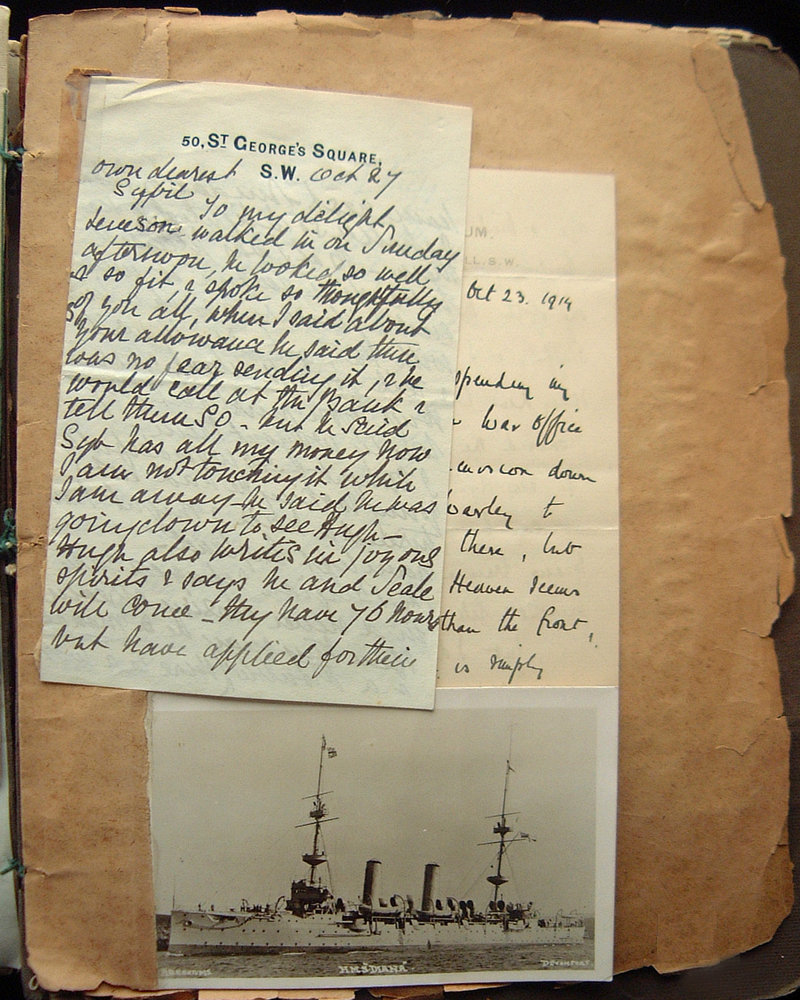 50, ST GEORGE'S SQUARE,
S.W. Oct 27
own dearest
Sybil To my delight
walked in on Sunday
afternoon, he looked so well
& so fit, & spoke so thoughtfully
of you all, when I said about
your allowance he said there
was no fear sending it, & he
would call at the Bank &
tell them so - but he said
Syb has all my money now
I am not touching it while
I am away - he said he was
going down to see Hugh -
Hugh also writes in joyous
spirits & says he and Seale
will come - they have 76 hours
but have applied for their
UM,
LL. S.W.
Oct 23. 1914
spending my
War Office
down
to
there, but
Heaven seems
than the front,
is simply
ABRAHAMS
H.M.S "DIANA"
DEVONPORT.